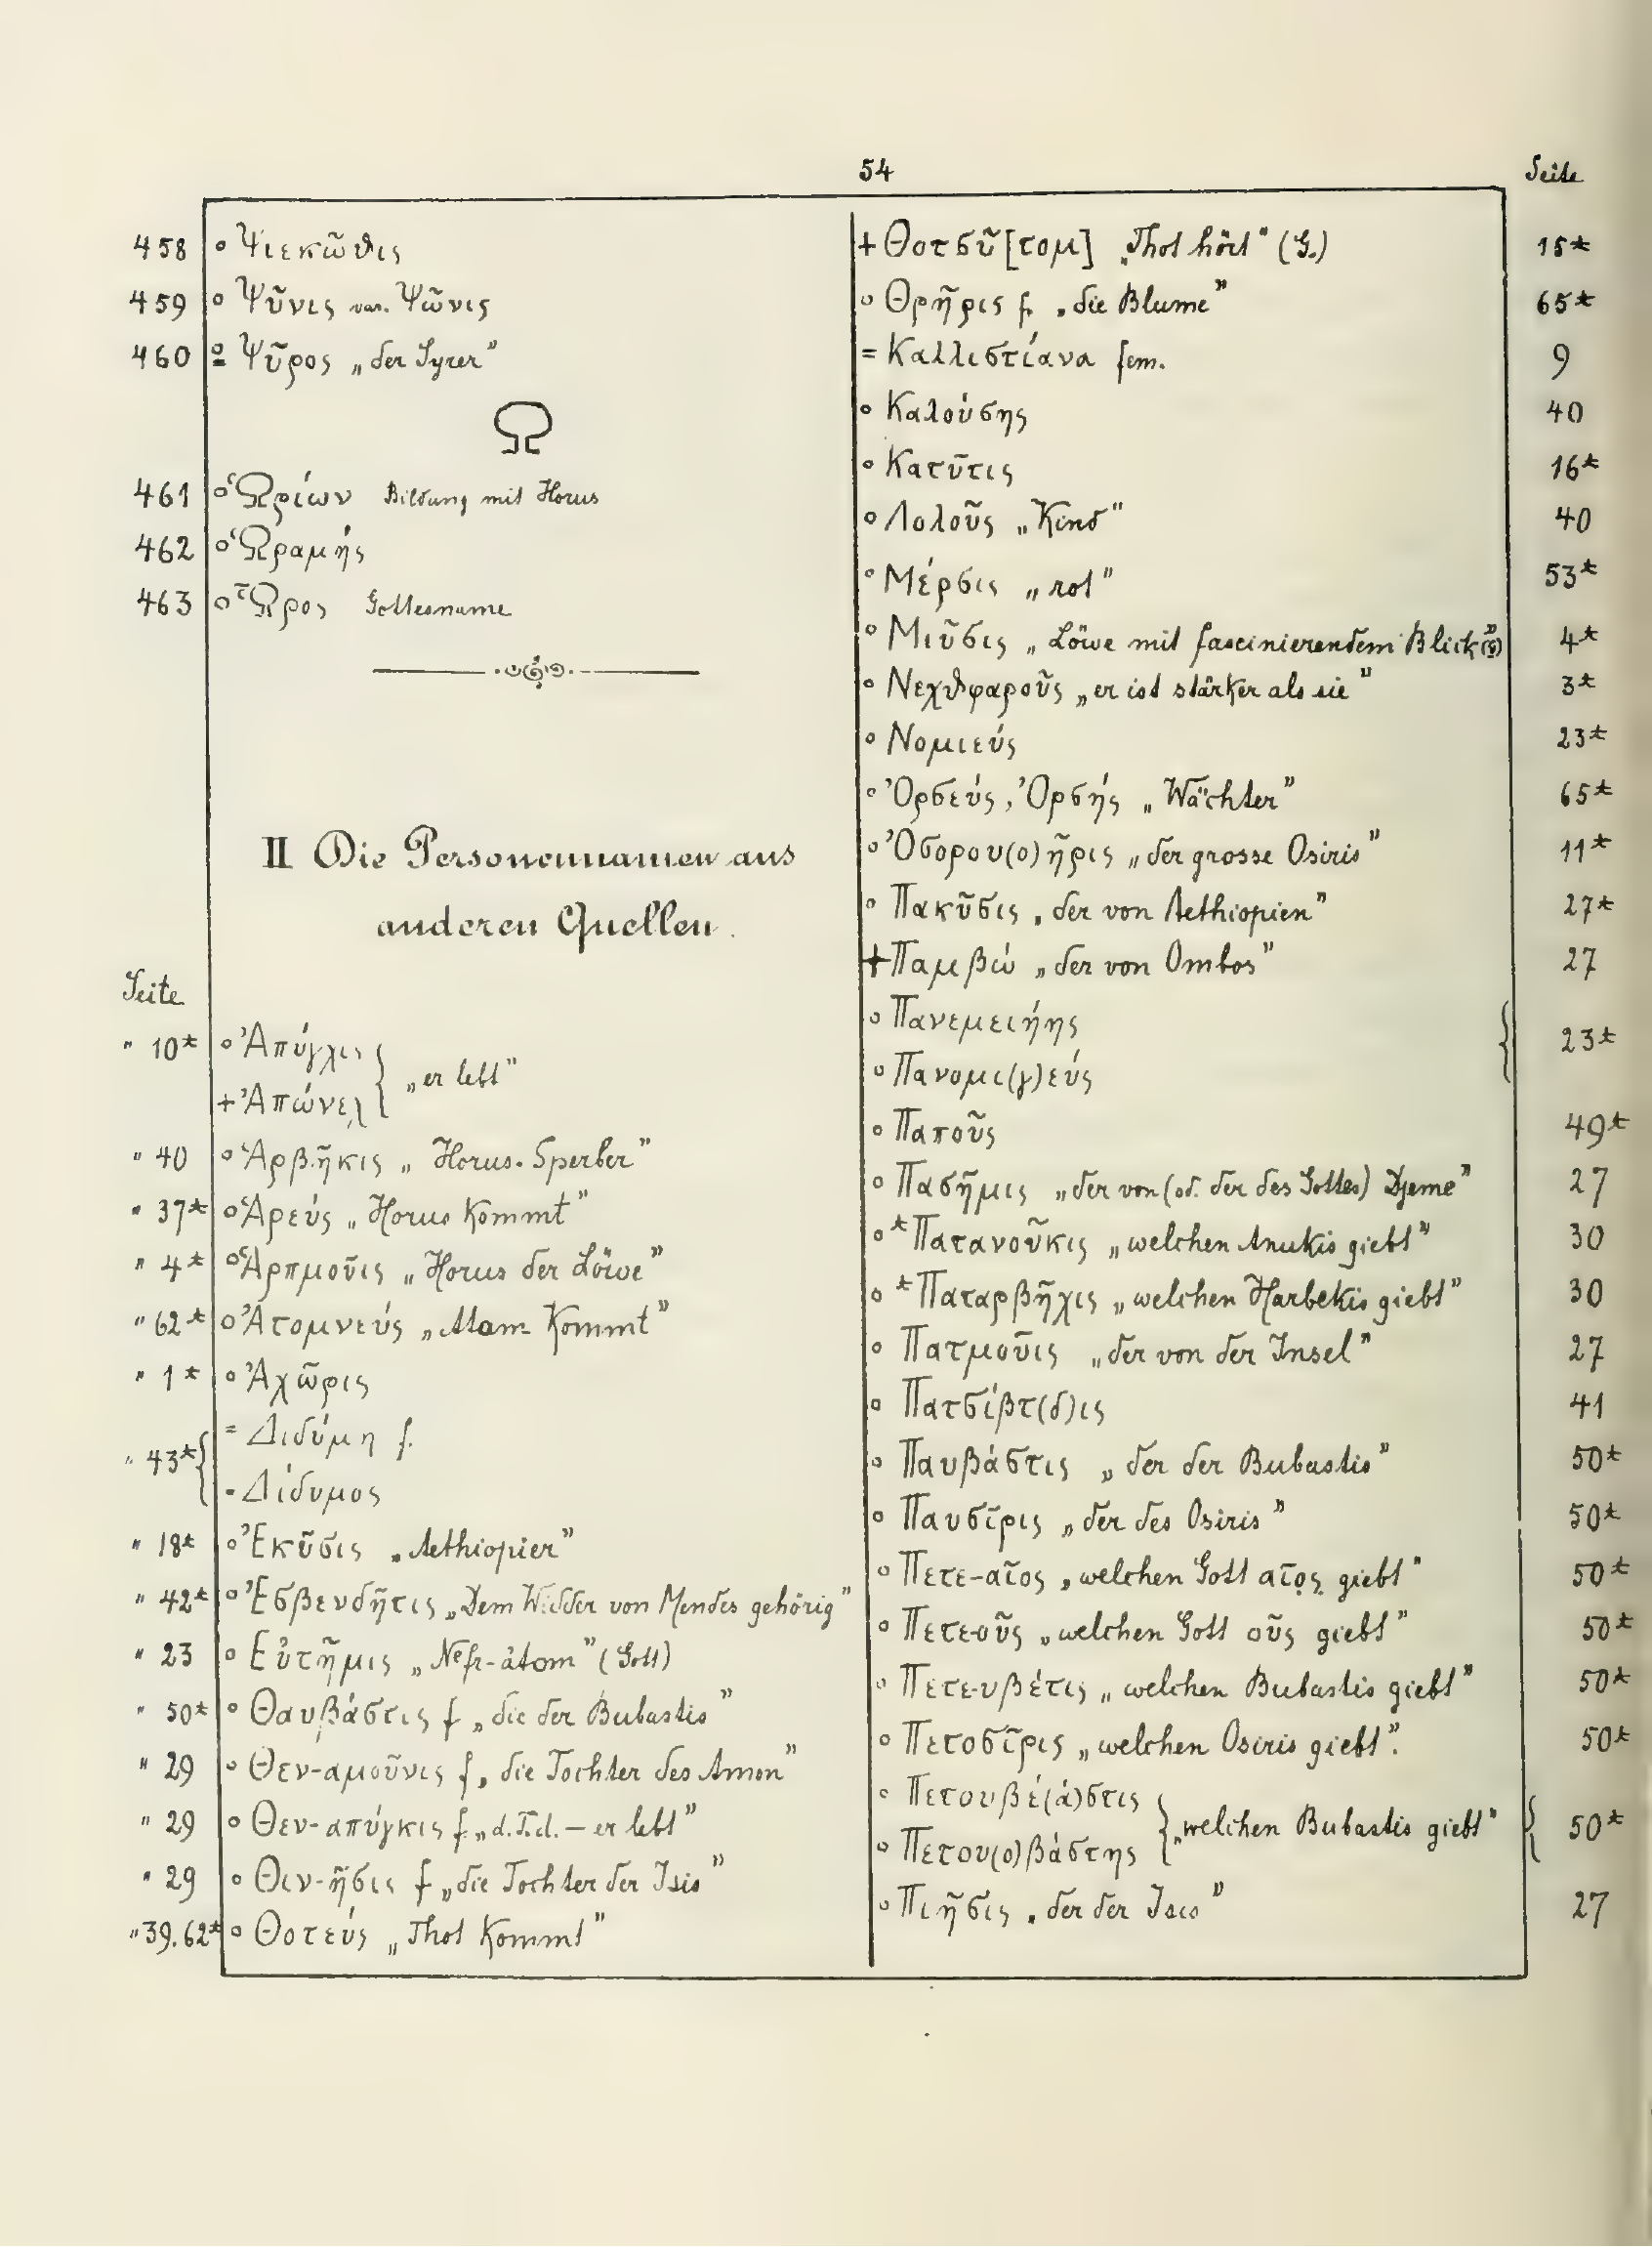 54
458 ∘ Ψιεκῶϑις
459 ∘ Ψῦνις var. Ψῶνις
460 Ψῦρος „der Syrer"
Ω
461 ∘ Ὡρίων Bildung mit Horus
462 ∘ Ὡραμής
463 ∘ Ὧρος Gottesname
II Die Personennamen aus
anderen Quellen.
Seite
" 10* ∘ Ἀπύγχις
+ Ἀπώνε „er lebt"
" 40 ∘ Ἁρβῆκις „Horus-Sperber"
" 37* ∘ Ἁρεύς „Horus kommt"
" 4* ∘ Ἁρπμοῦις „Horus der Löwe"
" 62* ∘ Ἀτομνεύς „Atam kommt"
" 1* ∘ Ἀχῶρις
" 43* = Διδύμη f.
- Δίδυμος
" 18* ∘ Ἐκῦσις „Aethiopier"
" 42* ∘ Ἐσβενδῆτις „Dem Widder von Mendes gehörig"
" 23 ∘ Εὐτῆμις „Nefr-âtom" (Gott)
" 50* ∘ Θαυβάστις f „die der Bubastis"
" 29 ∘ Θεν-αμοῦνις f „die Tochter des Amon"
" 29 ∘ Θεν-απύγκις f. „d. T. d. — er lebt"
" 29 ∘ Θιν-ῆσις f „die Tochter der Isis"
" 39. 62* ∘ Θοτεύς „Thot kommt"
Seite
+ Θοτσῦ[τομ] „Thot hört" (G.) 15*
∘ Θρῆρις f. „die Blume" 65*
= Καλλιστίανα fem. 9
∘ Καλούσης 40
∘ Κατῦτις 16*
∘ Λολοῦς „Kind" 40
∘ Μέρσις „rot" 53*
∘ Μιῦσις „Löwe mit fascinierendem Blick" 4*
∘ Νεχϑφαροῦς „er ist stärker als sie" 3*
∘ Νομιεύς 23*
∘ Ὀρσεύς, Ὀρσής „Wächter" 65*
∘ Ὀσορου(ο)ῆρις „der grosse Osiris" 11*
∘ Πακῦσις „der von Aethiopien" 27*
+ Παμβώ „der von Ombos" 27
∘ Πανεμειήης
∘ Πανομι(γ)εύς 23*
∘ Παποῦς 49*
∘ Πασῆμις „der von (od. der des Gottes) Djeme" 27
∘ *Πατανοῦκις „welchen Anukis giebt" 30
∘ *Παταρβῆχις „welchen Harbekis giebt" 30
∘ Πατμοῦις „der von der Insel" 27
∘ Πατσίβτ(δ)ις 41
∘ Παυβάστις „der der Bubastis" 50*
∘ Παυσῖρις „der des Osiris" 50*
∘ Πετε-αῖος „welchen Gott αῖος giebt" 50*
∘ Πετε-οῦς „welchen Gott οῦς giebt" 50*
∘ Πετε-υβέτις „welchen Bubastis giebt" 50*
∘ Πετοσῖρις „welchen Osiris giebt". 50*
∘ Πετουβέ(ά)στις
∘ Πετου(ο)βάστης „welchen Bubastis giebt" 50*
∘ Πιῆσις „der der Isis" 27